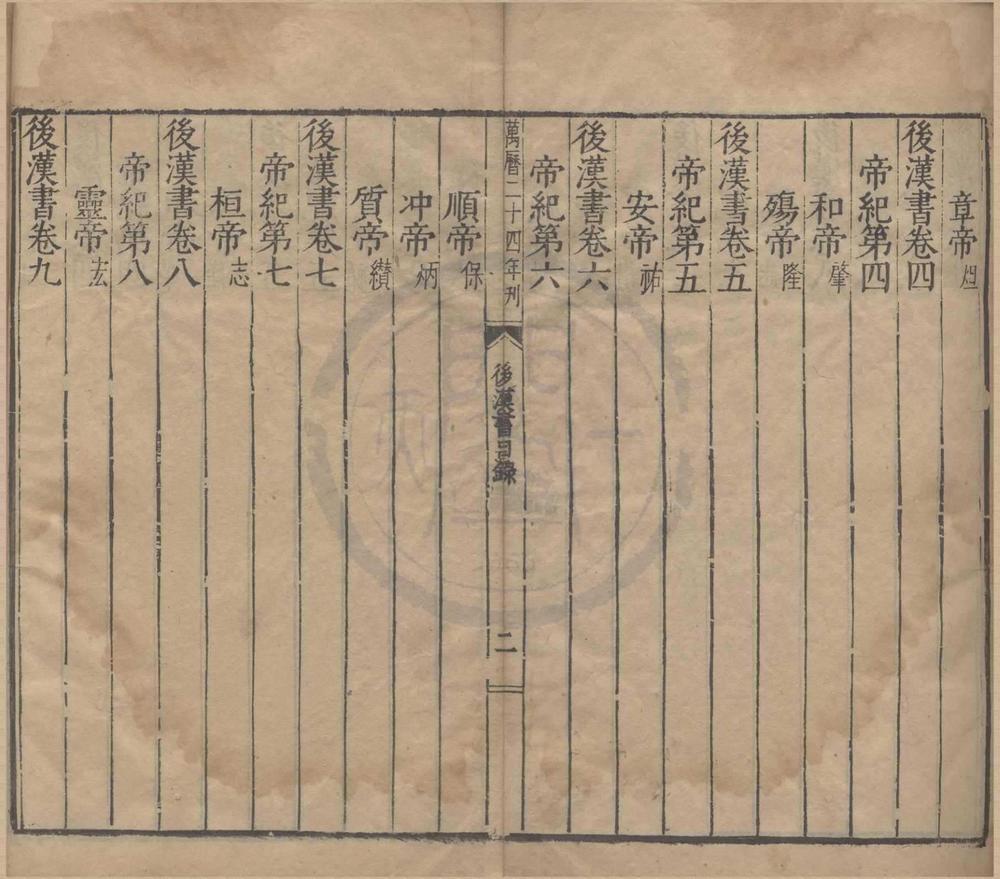 章帝炟
後漢書卷四
帝紀第四
和帝肇
殤帝隆
後漢書卷五
帝紀第五
安帝祐
後漢書卷六
帝紀第六
萬曆二十四年刊
後漢書目錄
二
順帝保
冲帝炳
質帝纉
後漢書卷七
帝紀第七
桓帝志
後漢書卷八
帝紀第八
靈帝宏
後漢書卷九